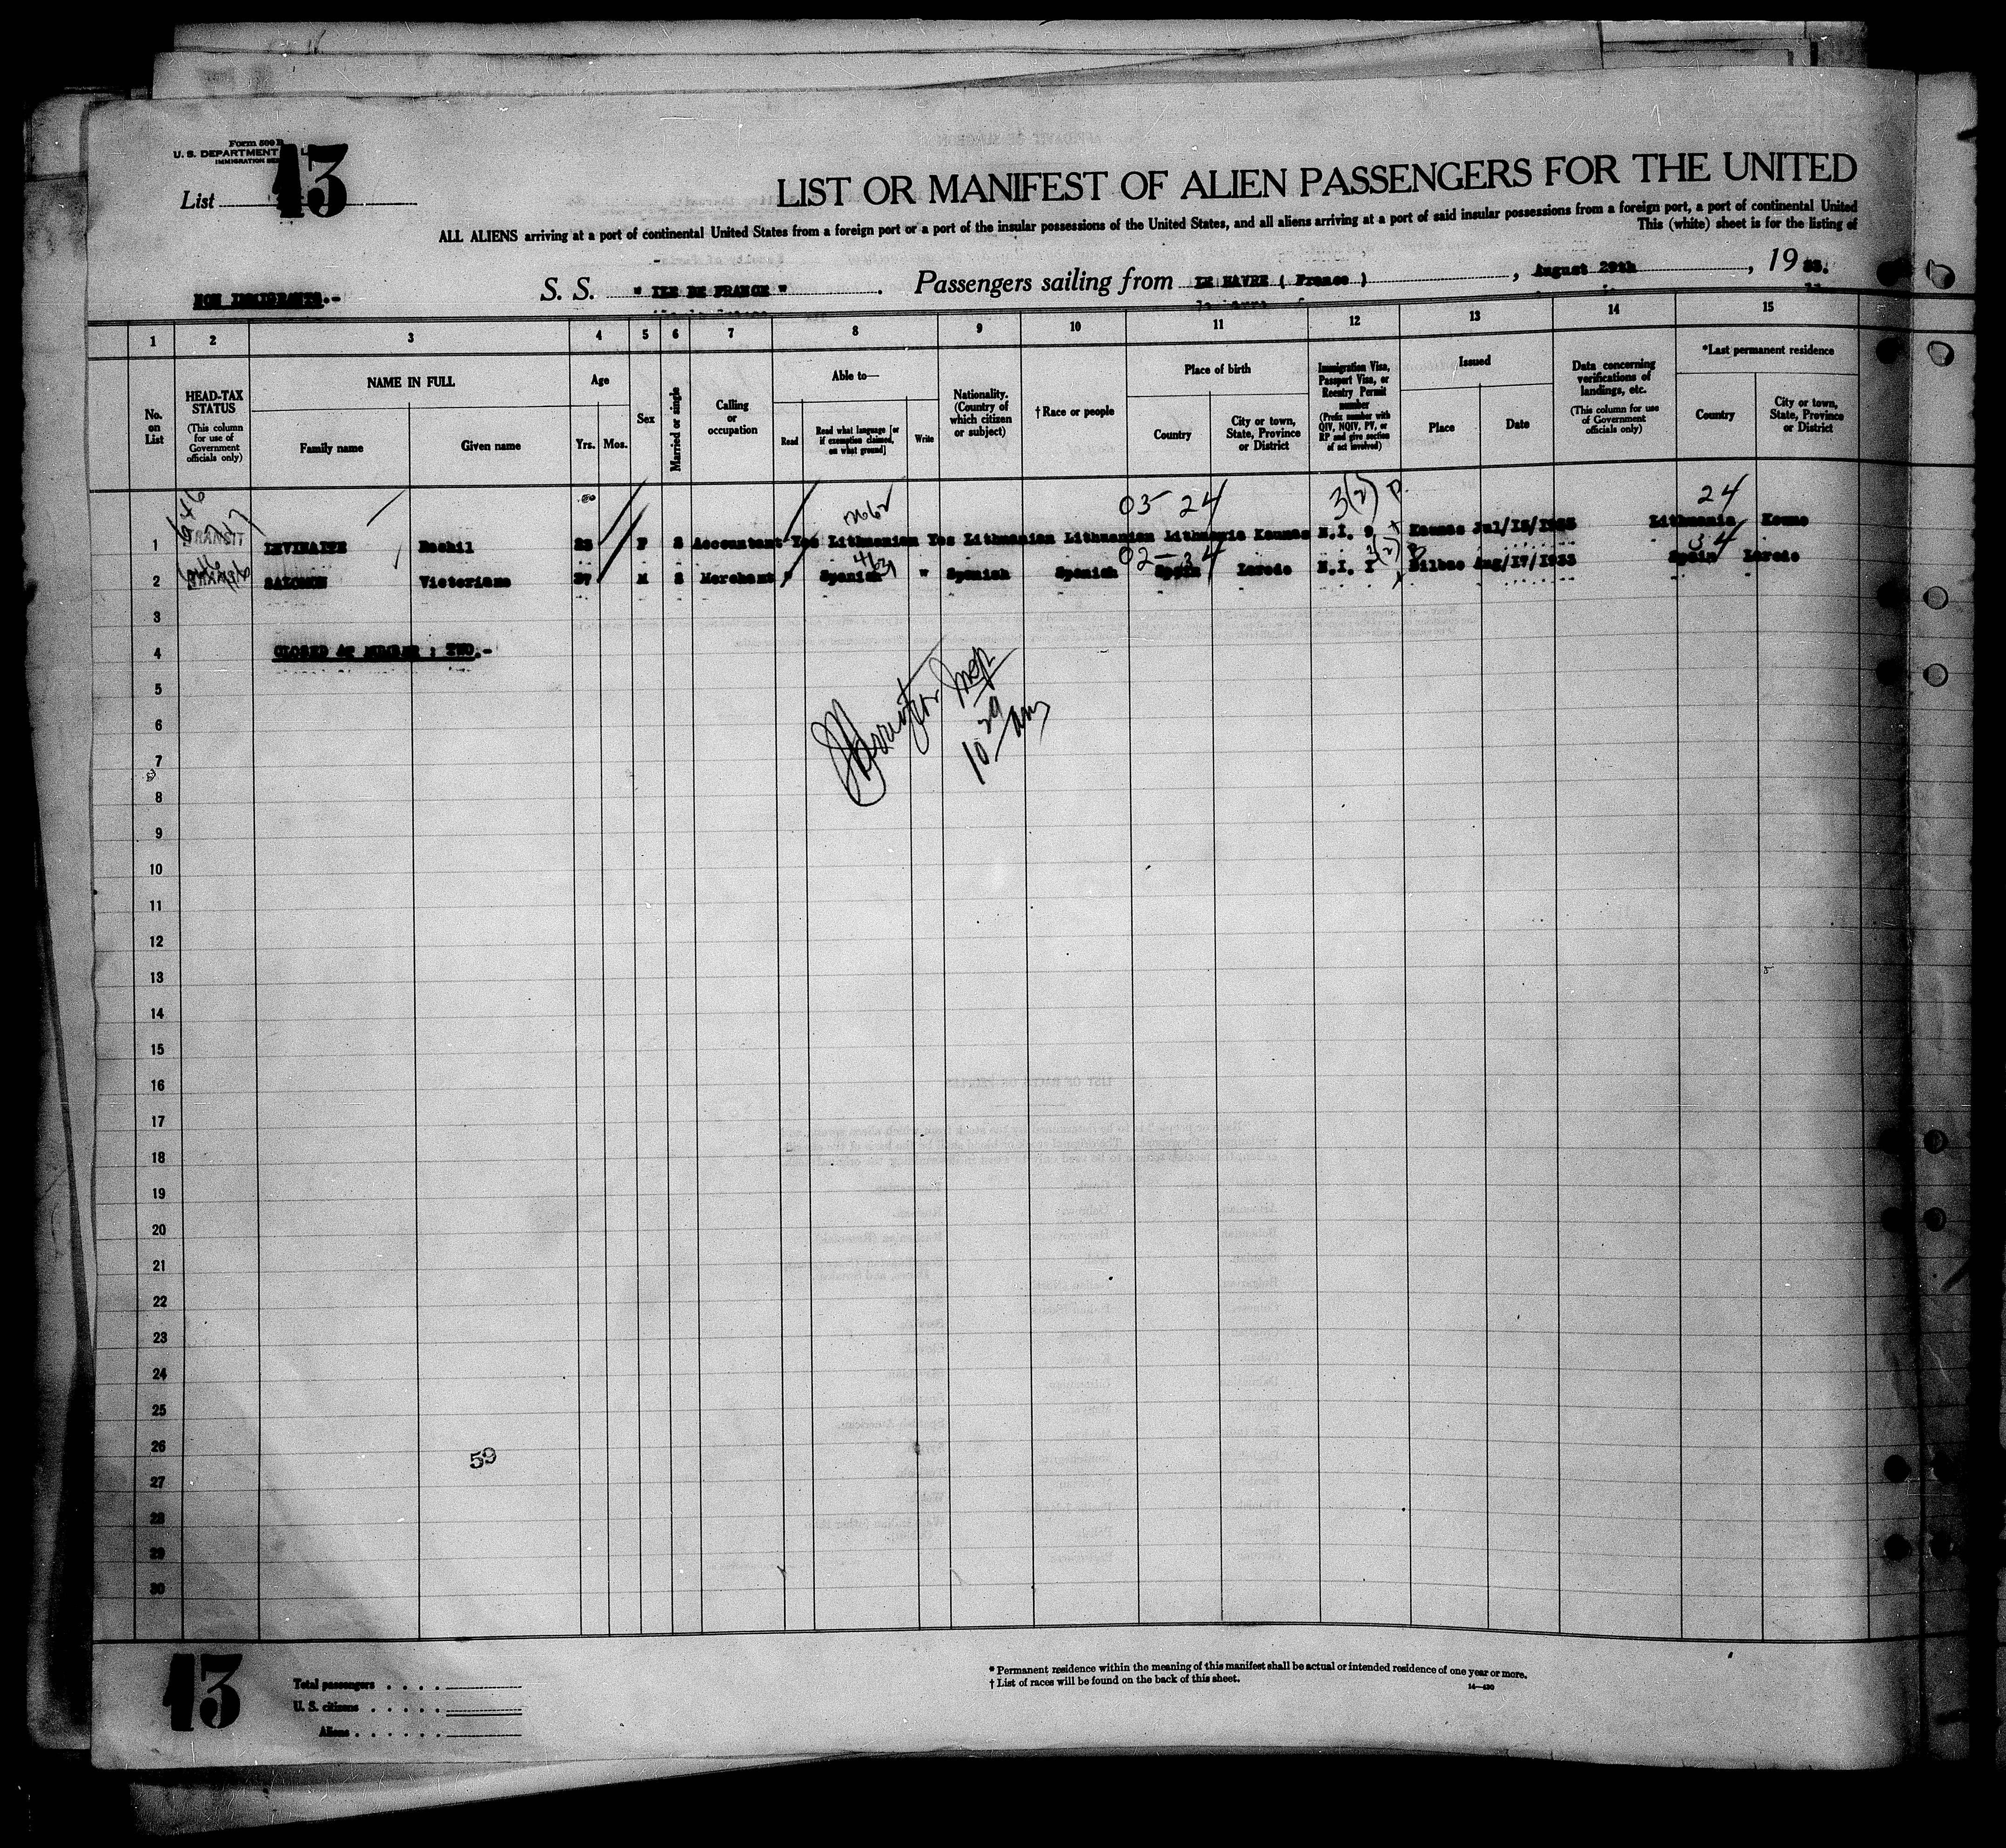 Form 500 B
U. S. DEPARTMENT
IMMIGRATION
List 13
LIST OR MANIFEST OF ALIEN PASSENGERS FOR THE UNITED
ALL ALIENS arriving at a port of continental United States from a foreign port or a port of the insular possessions of the United States, and all aliens arriving at a port of said insular possessions from a foreign port, a port of continental United
This (white) sheet is for the listing of
NON IMMIGRANTS.-
S. S. " ILE DE FRANCE " . Passengers sailing from LE HAVRE ( France ) , August 29th , 19 33.
1 2 3 4 5 6 7 8 9 10 11 12 13 14 15
No. on List
HEAD-TAX STATUS
(This column for use of Government officials only)
NAME IN FULL
Family name
Given name
Age
Yrs. Mos.
Sex
Married or single
Calling or occupation
Able to—
Read
Read what language [or if exemption claimed, on what ground]
Write
Nationality. (Country of which citizen or subject)
† Race or people
Place of birth
Country
City or town, State, Province or District
Immigration Visa, Passport Visa, or Reentry Permit number
(Prefix number with QIV, NQIV, PV, or RP and give section of act involved)
Issued
Place
Date
Data concerning verifications of landings, etc.
(This column for use of Government officials only)
*Last permanent residence
Country
City or town, State, Province or District
03-24 3(2) P. 24
1 TRANSIT LEVINAITE Rachil 23 F S Accountant Yes Lithuanian Yes Lithuanian Lithuanian Lithuania Kaunas N.I. 9 Kaunas Jul/18/1933 Lithuania Kouno
02-34 3(2) 34
2 SALOMON Victoriano 37 M S Merchant " Spanish " Spanish Spanish Spain Laredo N.I. I Bilbao Aug/17/1933 Spain Laredo
3
4 CLOSED AT NUMBER : TWO.-
5
6
7
8
9
10
11
12
13
14
15
16
17
18
19
20
21
22
23
24
25
26
59
27
28
29
30
13
Total passengers . . . .
U. S. citizens . . . . .
Aliens . . . . . .
* Permanent residence within the meaning of this manifest shall be actual or intended residence of one year or more.
† List of races will be found on the back of this sheet.
14—430